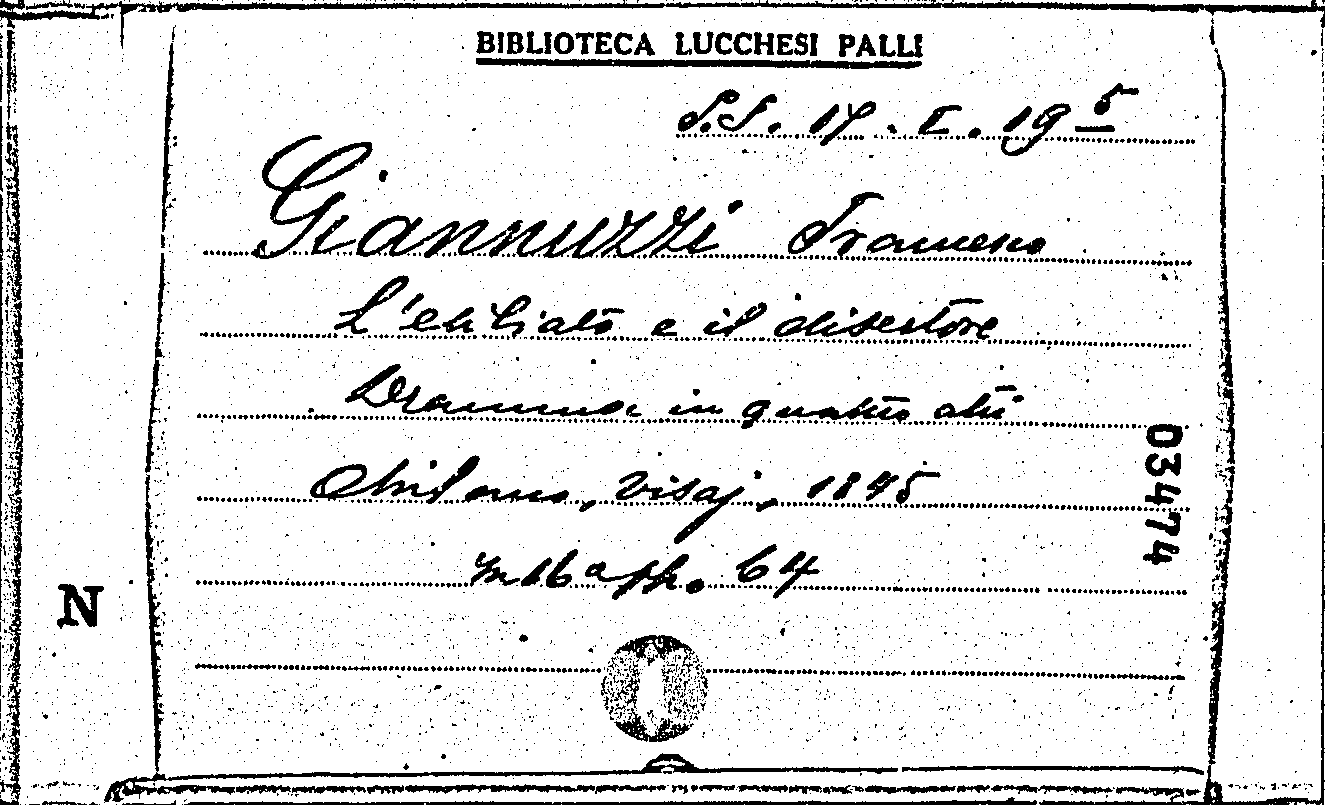 BIBLIOTECA LUCCHESI PALLI
S.S. 14. I. 19 5
Giannuzzi Francesco
L'esiliato e il disertore
Dramma in quattro atti
Milano, Visaj, 1845
in 16° pp. 64
03474
N